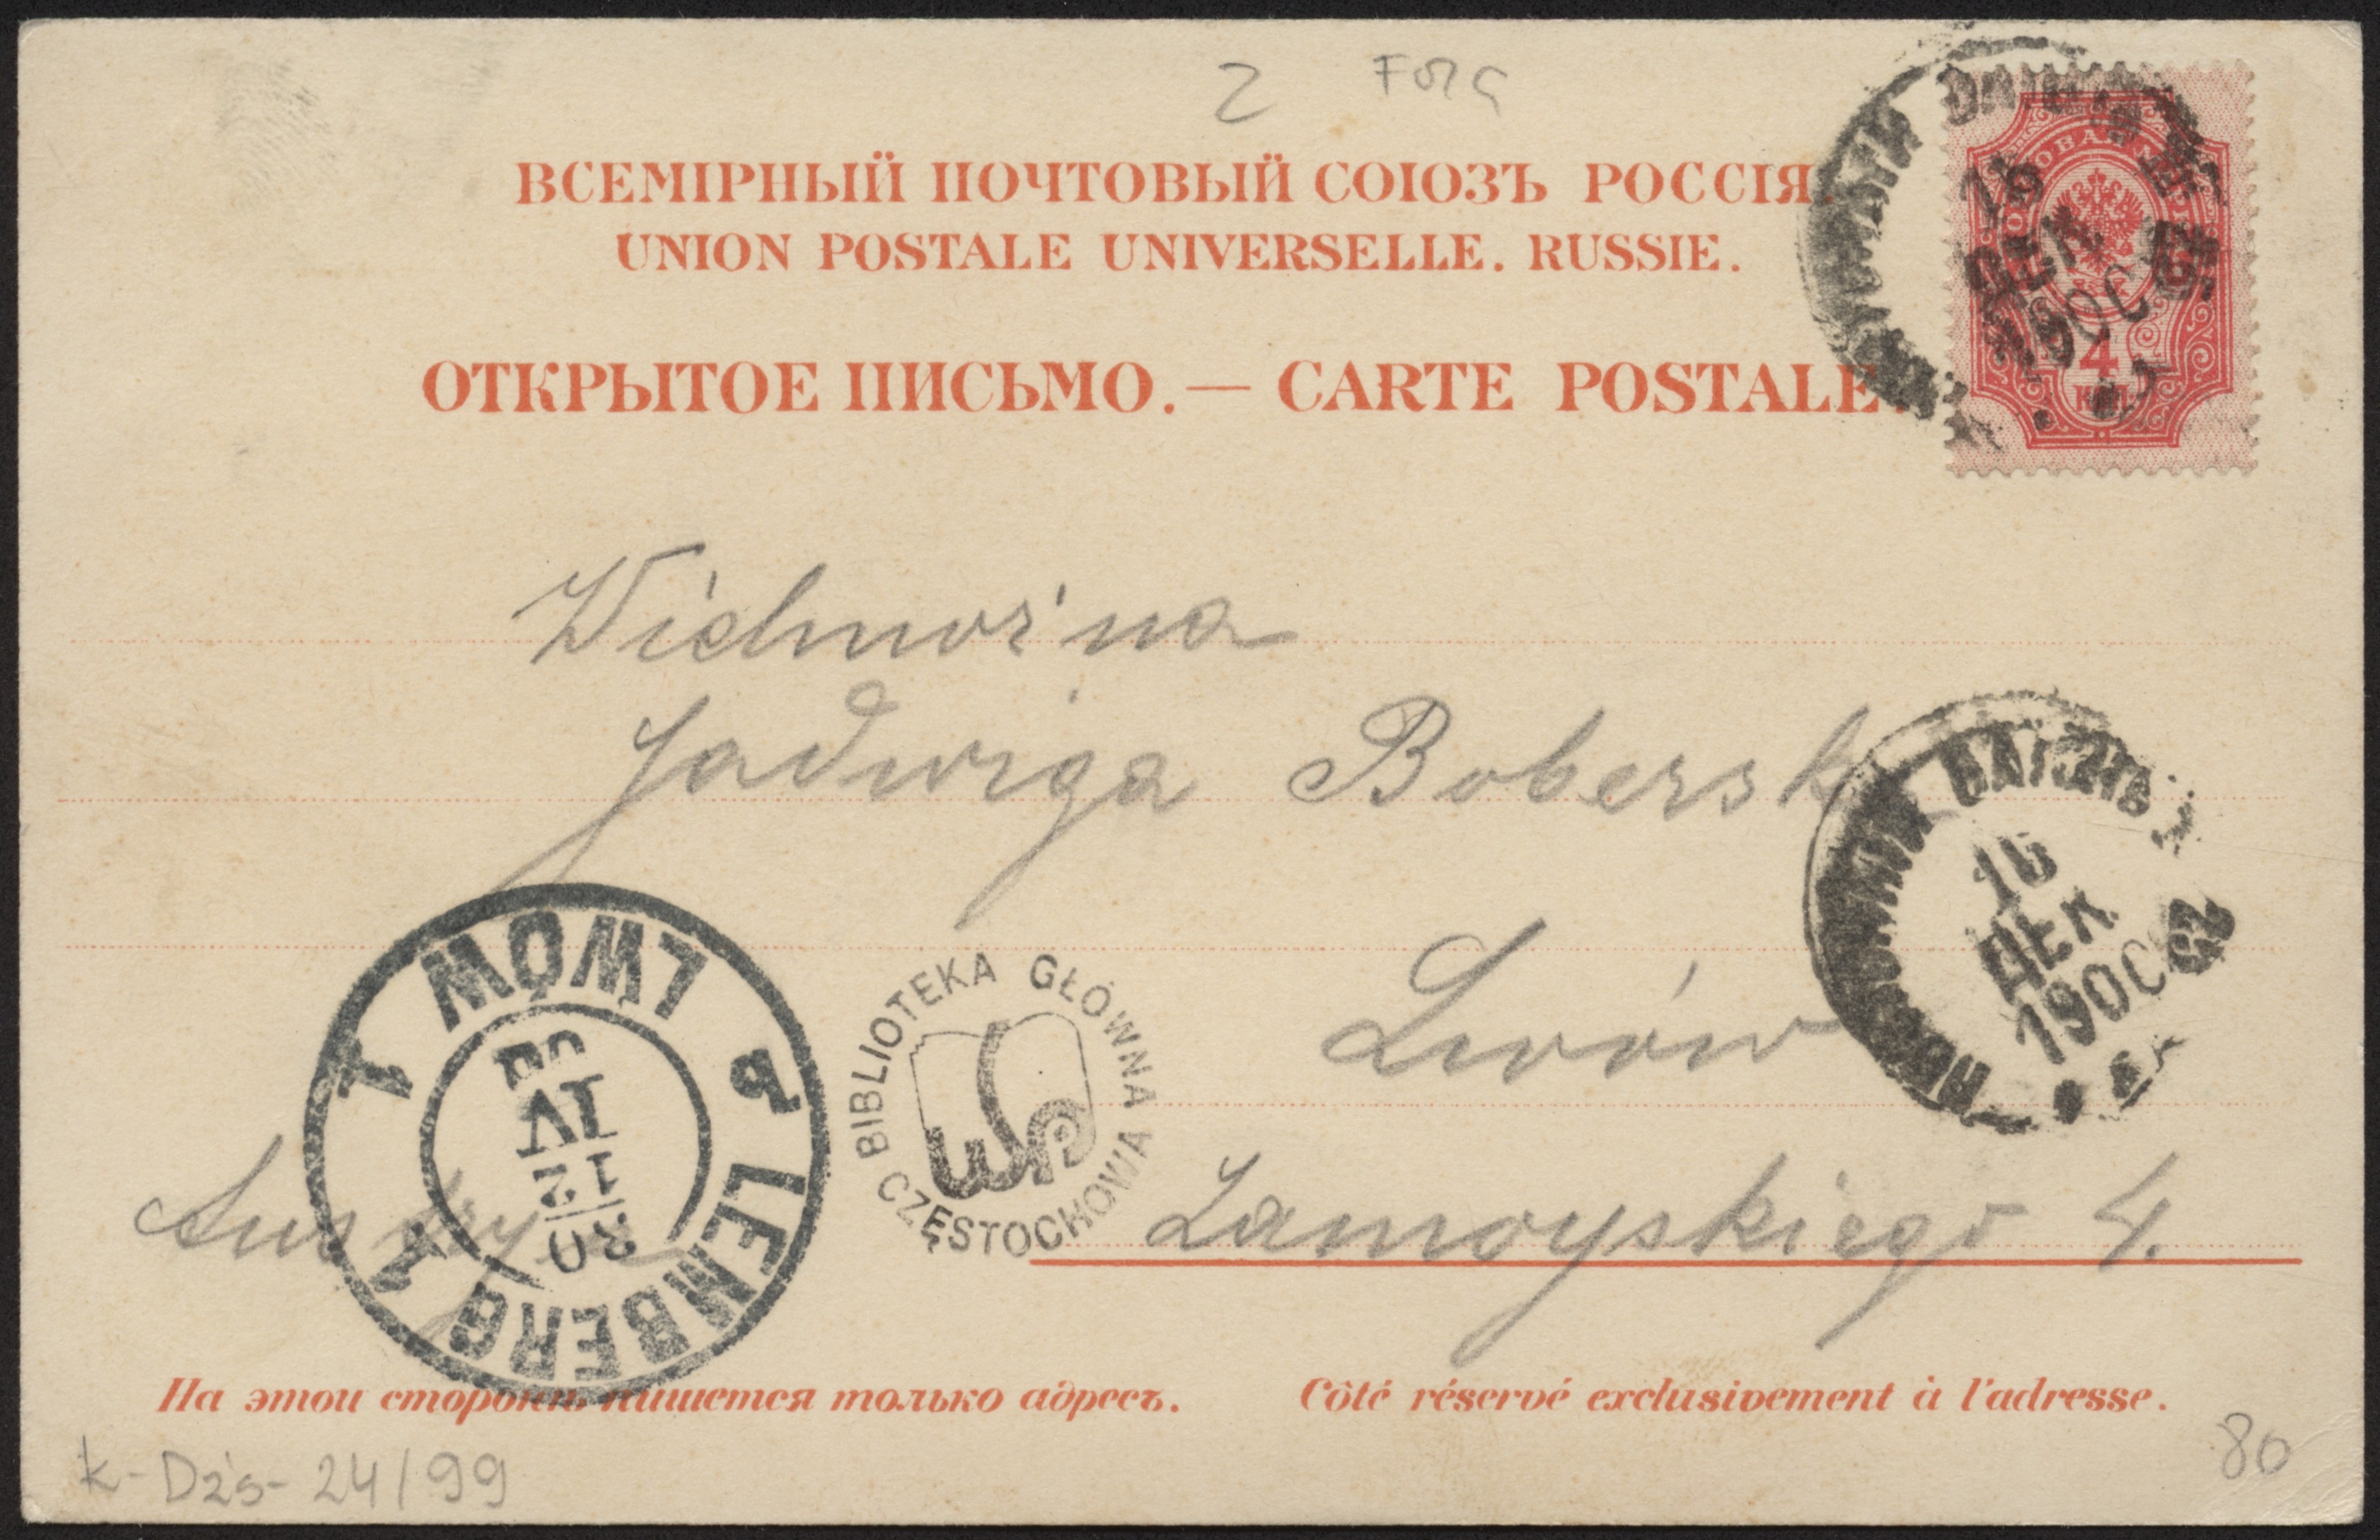 2 FOLG
ВСЕМІРНЫЙ ПОЧТОВЫЙ СОЮЗЪ РОССІЯ.
UNION POSTALE UNIVERSELLE. RUSSIE.
ОТКРЫТОЕ ПИСЬМО. — CARTE POSTALE.
16
ДЕК
1900
4
КОП
Wielmożna
Jadwiga Bobersk
16
ДЕК
1900
LWÓW 1
LEMBERG 1
30
12
IV
00
BIBLIOTEKA GŁÓWNA
WSP
CZĘSTOCHOWA
Lwów
Austrya
Zamoyskiego 4.
На этой сторонѣ пишется только адресъ. Côté réservé exclusivement à l'adresse.
k-Dzś-24/99
80